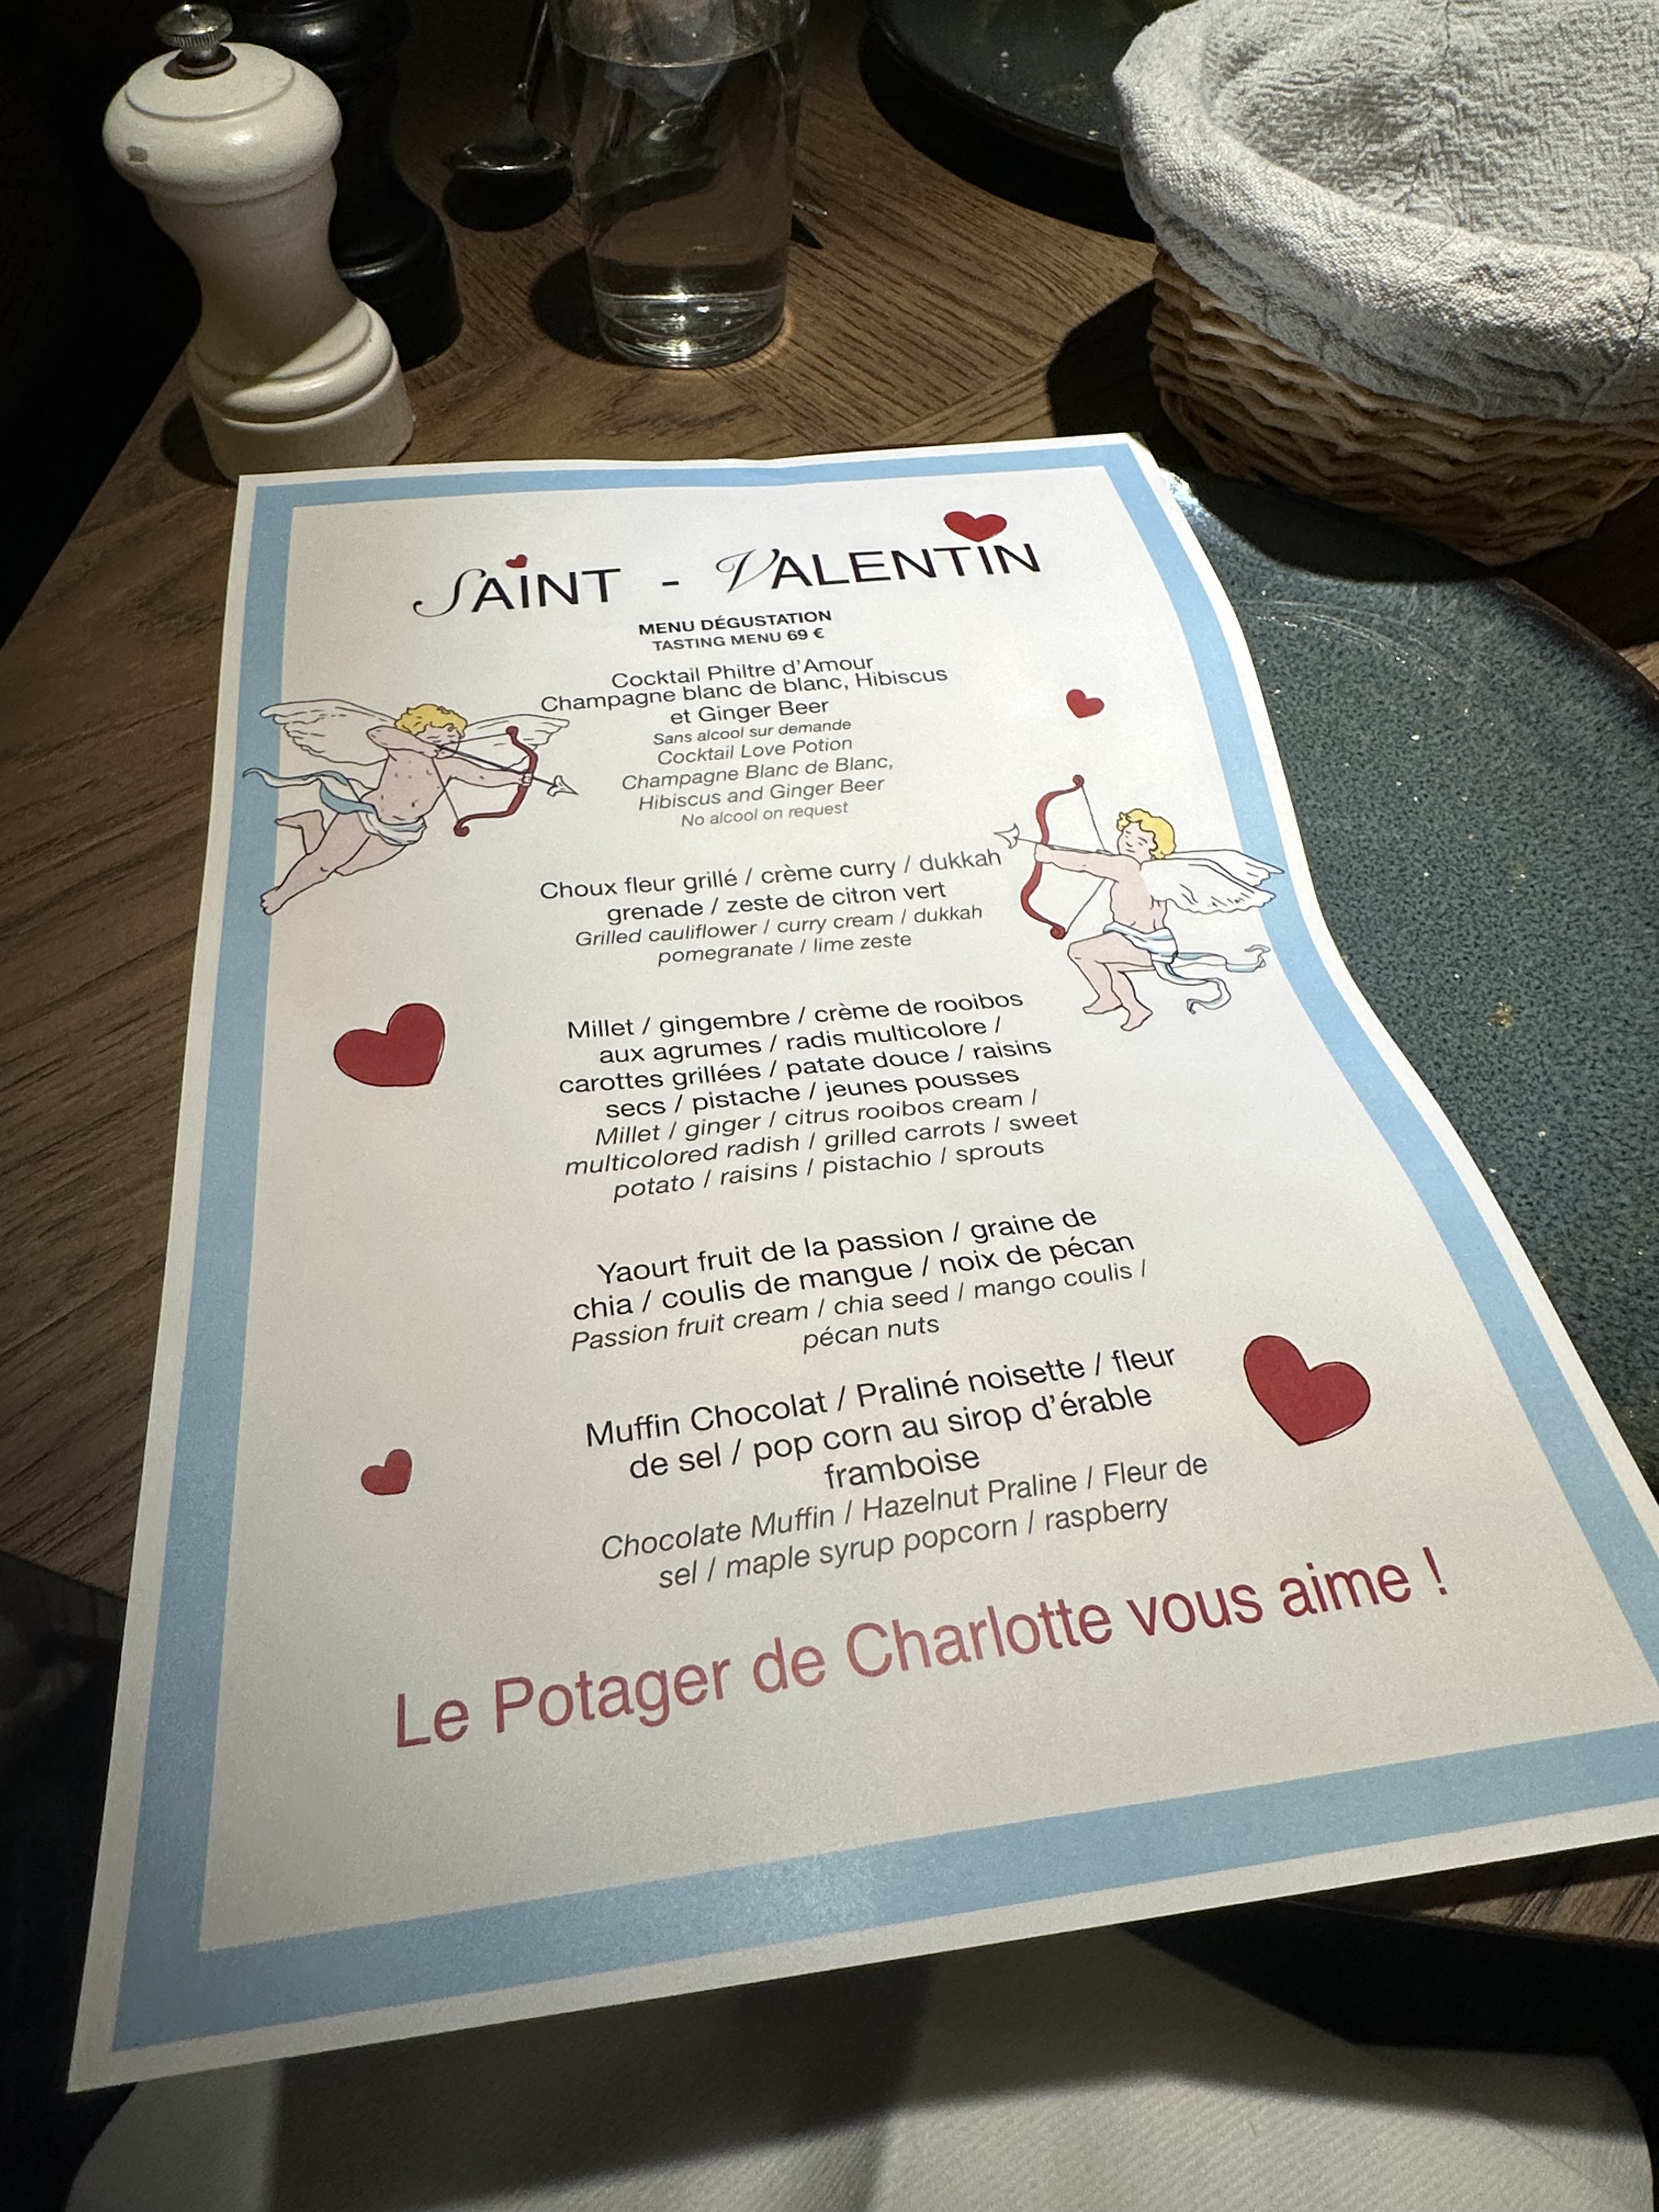 SAINT - VALENTIN
MENU DÉGUSTATION
TASTING MENU 69 €
Cocktail Philtre d'Amour
Champagne blanc de blanc, Hibiscus
et Ginger Beer
Sans alcool sur demande
Cocktail Love Potion
Champagne Blanc de Blanc,
Hibiscus and Ginger Beer
No alcool on request
Choux fleur grillé / crème curry / dukkah
grenade / zeste de citron vert
Grilled cauliflower / curry cream / dukkah
pomegranate / lime zeste
Millet / gingembre / crème de rooibos
aux agrumes / radis multicolore /
carottes grillées / patate douce / raisins
secs / pistache / jeunes pousses
Millet / ginger / citrus rooibos cream /
multicolored radish / grilled carrots / sweet
potato / raisins / pistachio / sprouts
Yaourt fruit de la passion / graine de
chia / coulis de mangue / noix de pécan
Passion fruit cream / chia seed / mango coulis /
pécan nuts
Muffin Chocolat / Praliné noisette / fleur
de sel / pop corn au sirop d'érable
framboise
Chocolate Muffin / Hazelnut Praline / Fleur de
sel / maple syrup popcorn / raspberry
Le Potager de Charlotte vous aime !